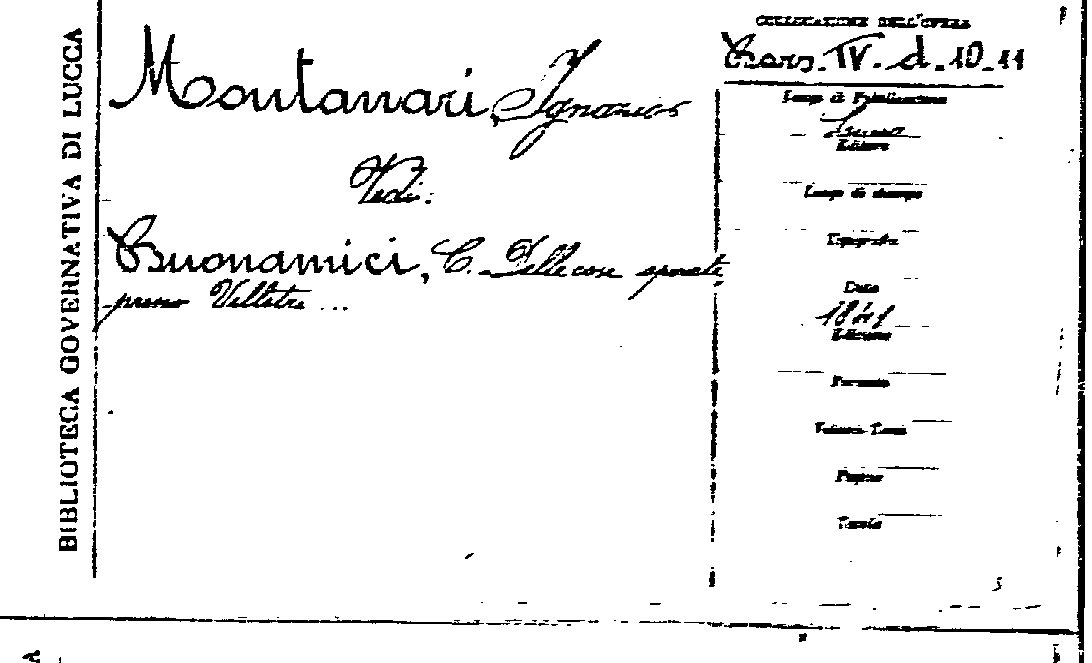 BIBLIOTECA GOVERNATIVA DI LUCCA
Montanari, Ignazio
Vedi:
Buonamici, C. Delle cose operate
presso Velletri ...
COLLOCAZIONE DELL'OPERA
Bars. IV. d. 10. 11
Luogo di Pubblicazione
Editore
Luogo di stampa
Tipografia
Data
1841
Edizione
Formato
Volumi-Tomi
Pagine
Tavole